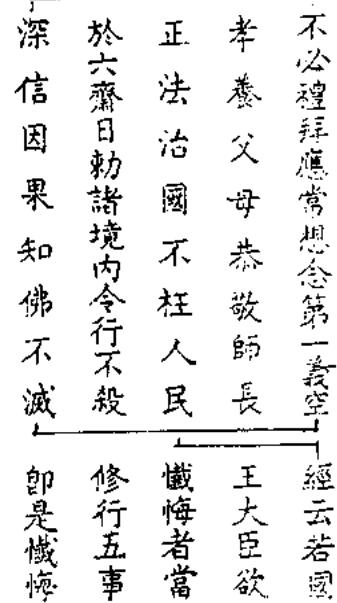 不必禮拜應當想念第一義空
孝養父母恭敬師長
正法治國不枉人民
於六齋日勅諸境內令行不殺
深信因果知佛不滅
經云若國
王大臣欲
懺悔者當
修行五事
卽是懺悔